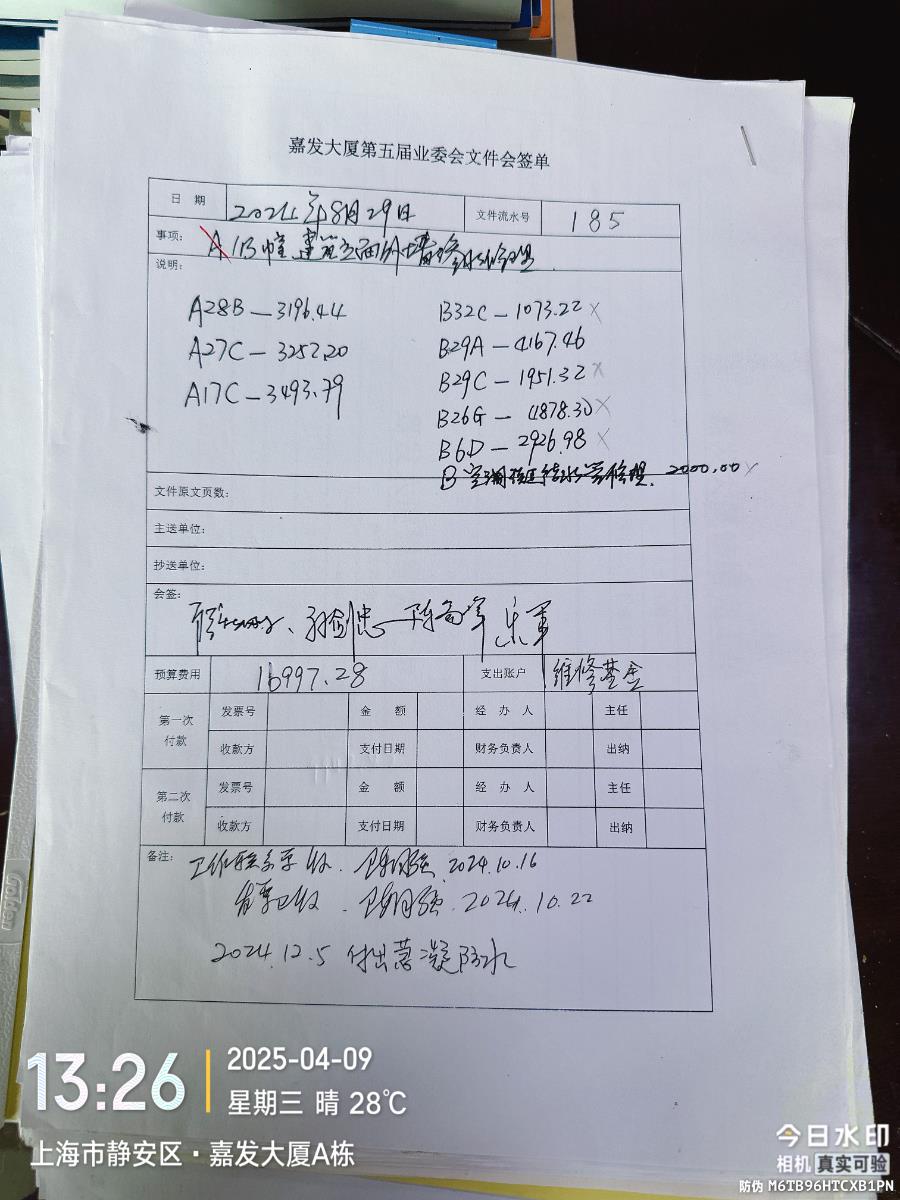 嘉发大厦第五届业委会文件会签单
日 期 2024年8月29日 文件流水号 185
事项: A/B幢建筑立面外墙修
说明:
A28B—3196.44 B32C—1073.22 ×
A27C—3257.20 B29A—4167.46
A17C—3493.79 B29C—1951.32 ×
B26G—4878.30 ×
B6D—2926.98 ×
B 修理. 2000.00
文件原文页数:
主送单位:
抄送单位:
会签:
预算费用 16997.28 支出账户 维修基金
第一次付款 发票号 金 额 经 办 人 主任
收款方 支付日期 财务负责人 出纳
第二次付款 发票号 金 额 经 办 人 主任
收款方 支付日期 财务负责人 出纳
备注: 工作联系单收. 2024.10.16
发票已收. 2024.10.22
2024.12.5 付出 防水
Golden
13:26 2025-04-09
星期三 晴 28℃
上海市静安区·嘉发大厦A栋
今日水印
相机 真实可验
防伪 M6TB96HTCXB1PN